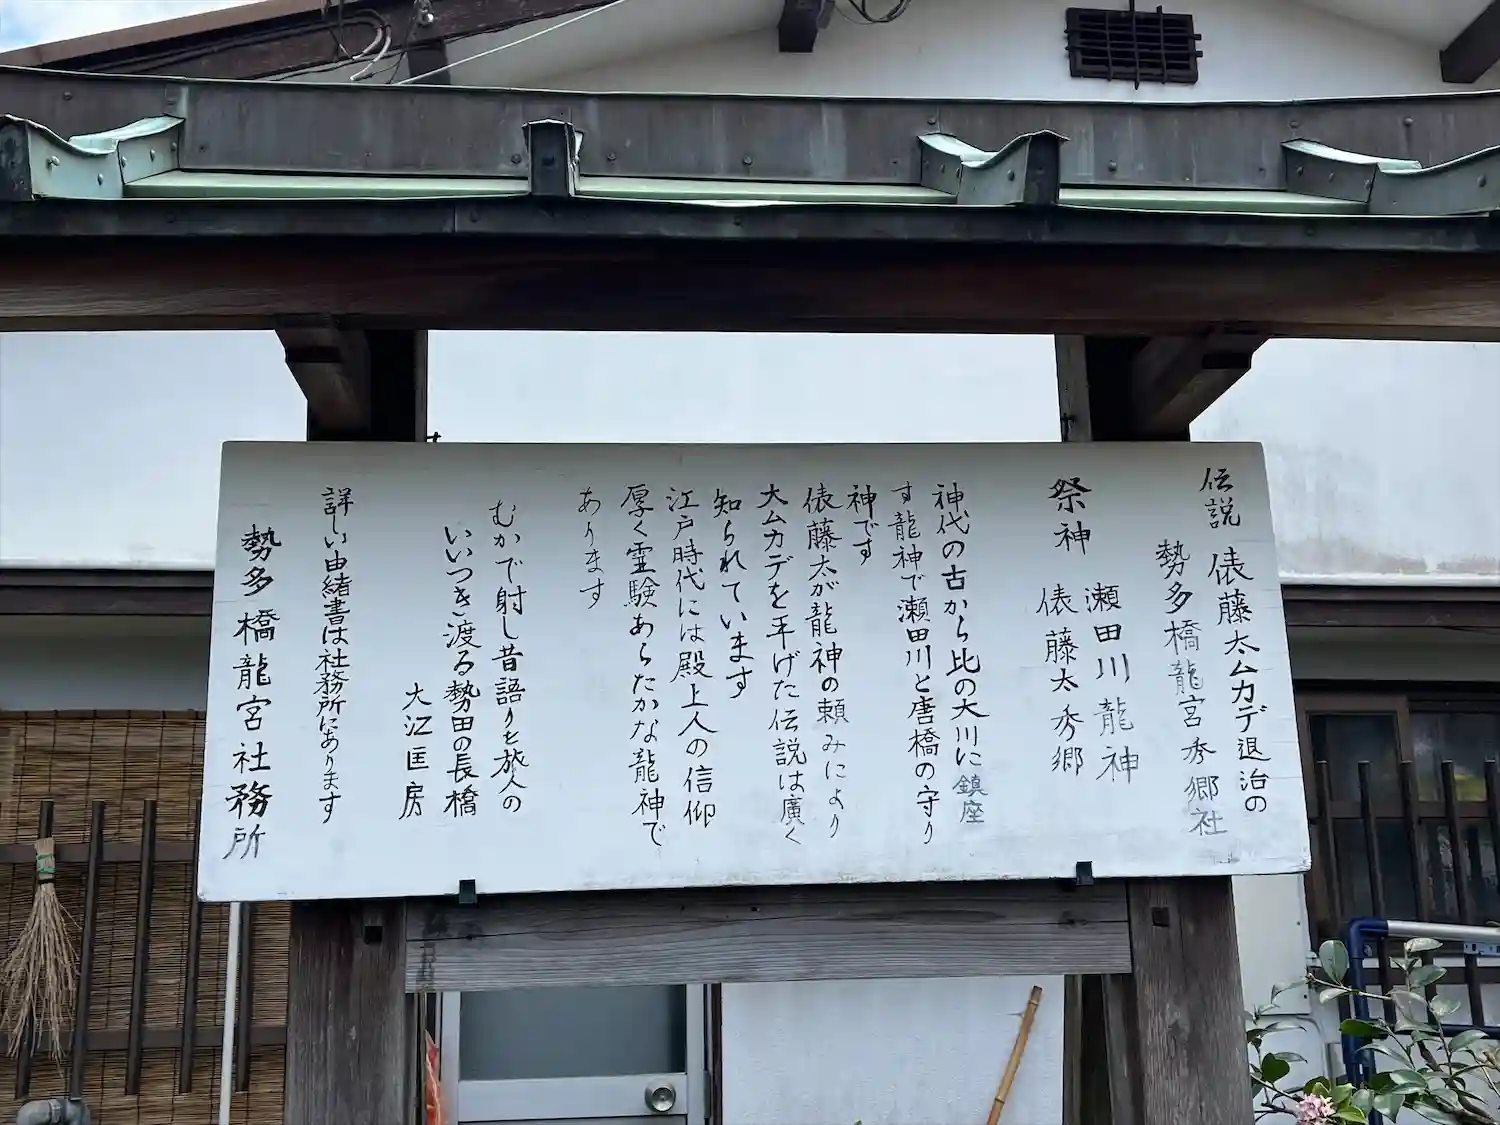 伝説 俵藤太ムカデ退治の
勢多橋龍宮秀郷社
祭神 瀬田川龍神
俵藤太秀郷
神代の古から比の大川に鎮座
す龍神で瀬田川と唐橋の守り
神です
俵藤太が龍神の頼みにより
大ムカデを平げた伝説は廣く
知られています
江戸時代には殿上人の信仰
厚く霊験あらたかな龍神で
あります
むかで射し昔語りを旅人の
いいつき渡る勢田の長橋
大江匡房
詳しい由緒書は社務所にあります
勢多橋龍宮社務所